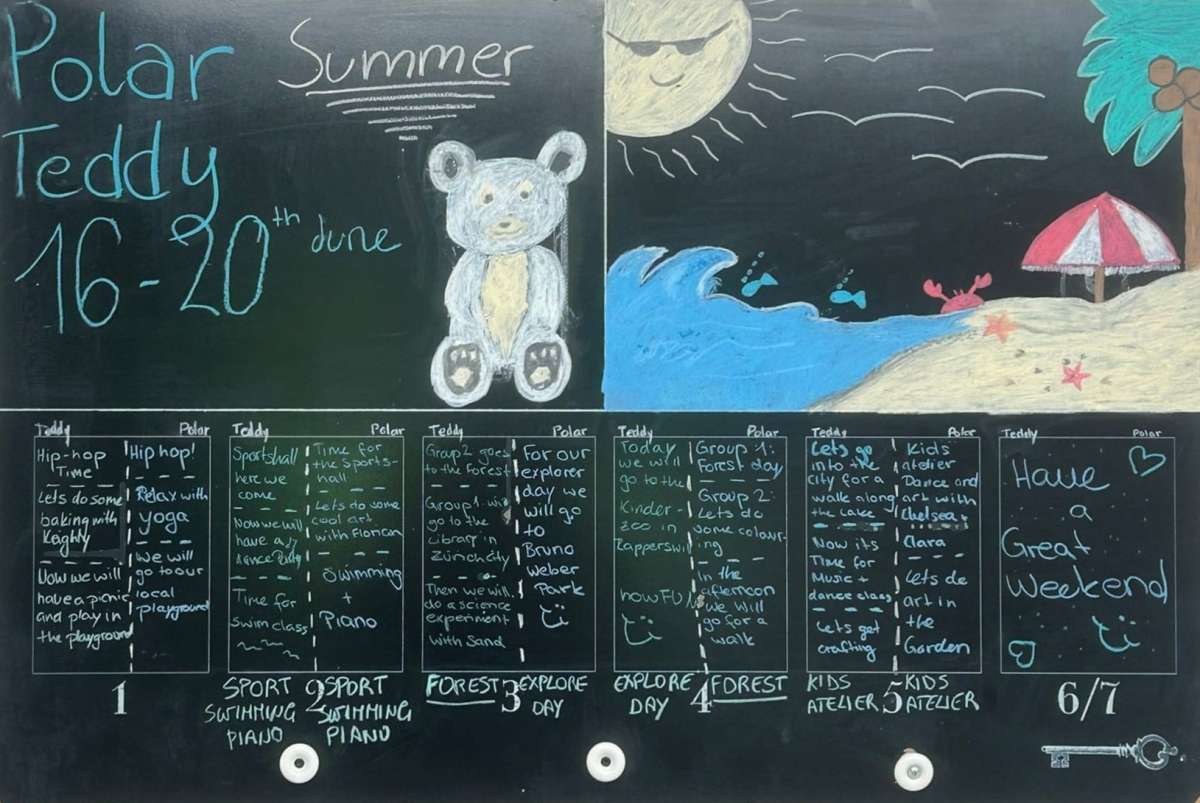 Polar
Teddy
16-20th June
Summer
Teddy
Hip-hop
Time
Lets do some
baking with
Keighly
Now we will
have a picnic
and play in
the playground
Polar
Hip hop!
Relax with
yoga
We will
go to our
local
playground
1
Teddy
Sportshall
here we
come
Now we will
have a
Dance Party
Time for
swim class
Polar
Time for
the Sports-
hall
Lets do some
cool art
with Florian
Swimming
+
Piano
2
SPORT
SWIMMING
PIANO
SPORT
SWIMMING
PIANO
Teddy
Group 2 goes
to the Forest
Group 1 will
go to the
Library in
Zürich city
Then we will
do a science
experiment
with sand
Polar
For our
explorer
day we
will go
to
Bruno
Weber
Park
3
FOREST
EXPLORE
DAY
Teddy
Today
we will
go to the
Kinder-
zoo in
Rapperswil
how FUN
Polar
Group 1:
Forest day
Group 2:
Lets do
some colour-
ing
In the
afternoon
we will
go for a
walk
4
EXPLORE
DAY
FOREST
Teddy
Lets go
into the
city for a
walk along
the lake
Now its
Time for
Music +
dance class
Lets get
crafting
Polar
Kids
atelier
Dance and
art with
Chelsea +
Clara
Lets do
art in
the
Garden
5
KIDS
ATELIER
KIDS
ATELIER
Teddy
Polar
Have
a
Great
Weekend
6/7